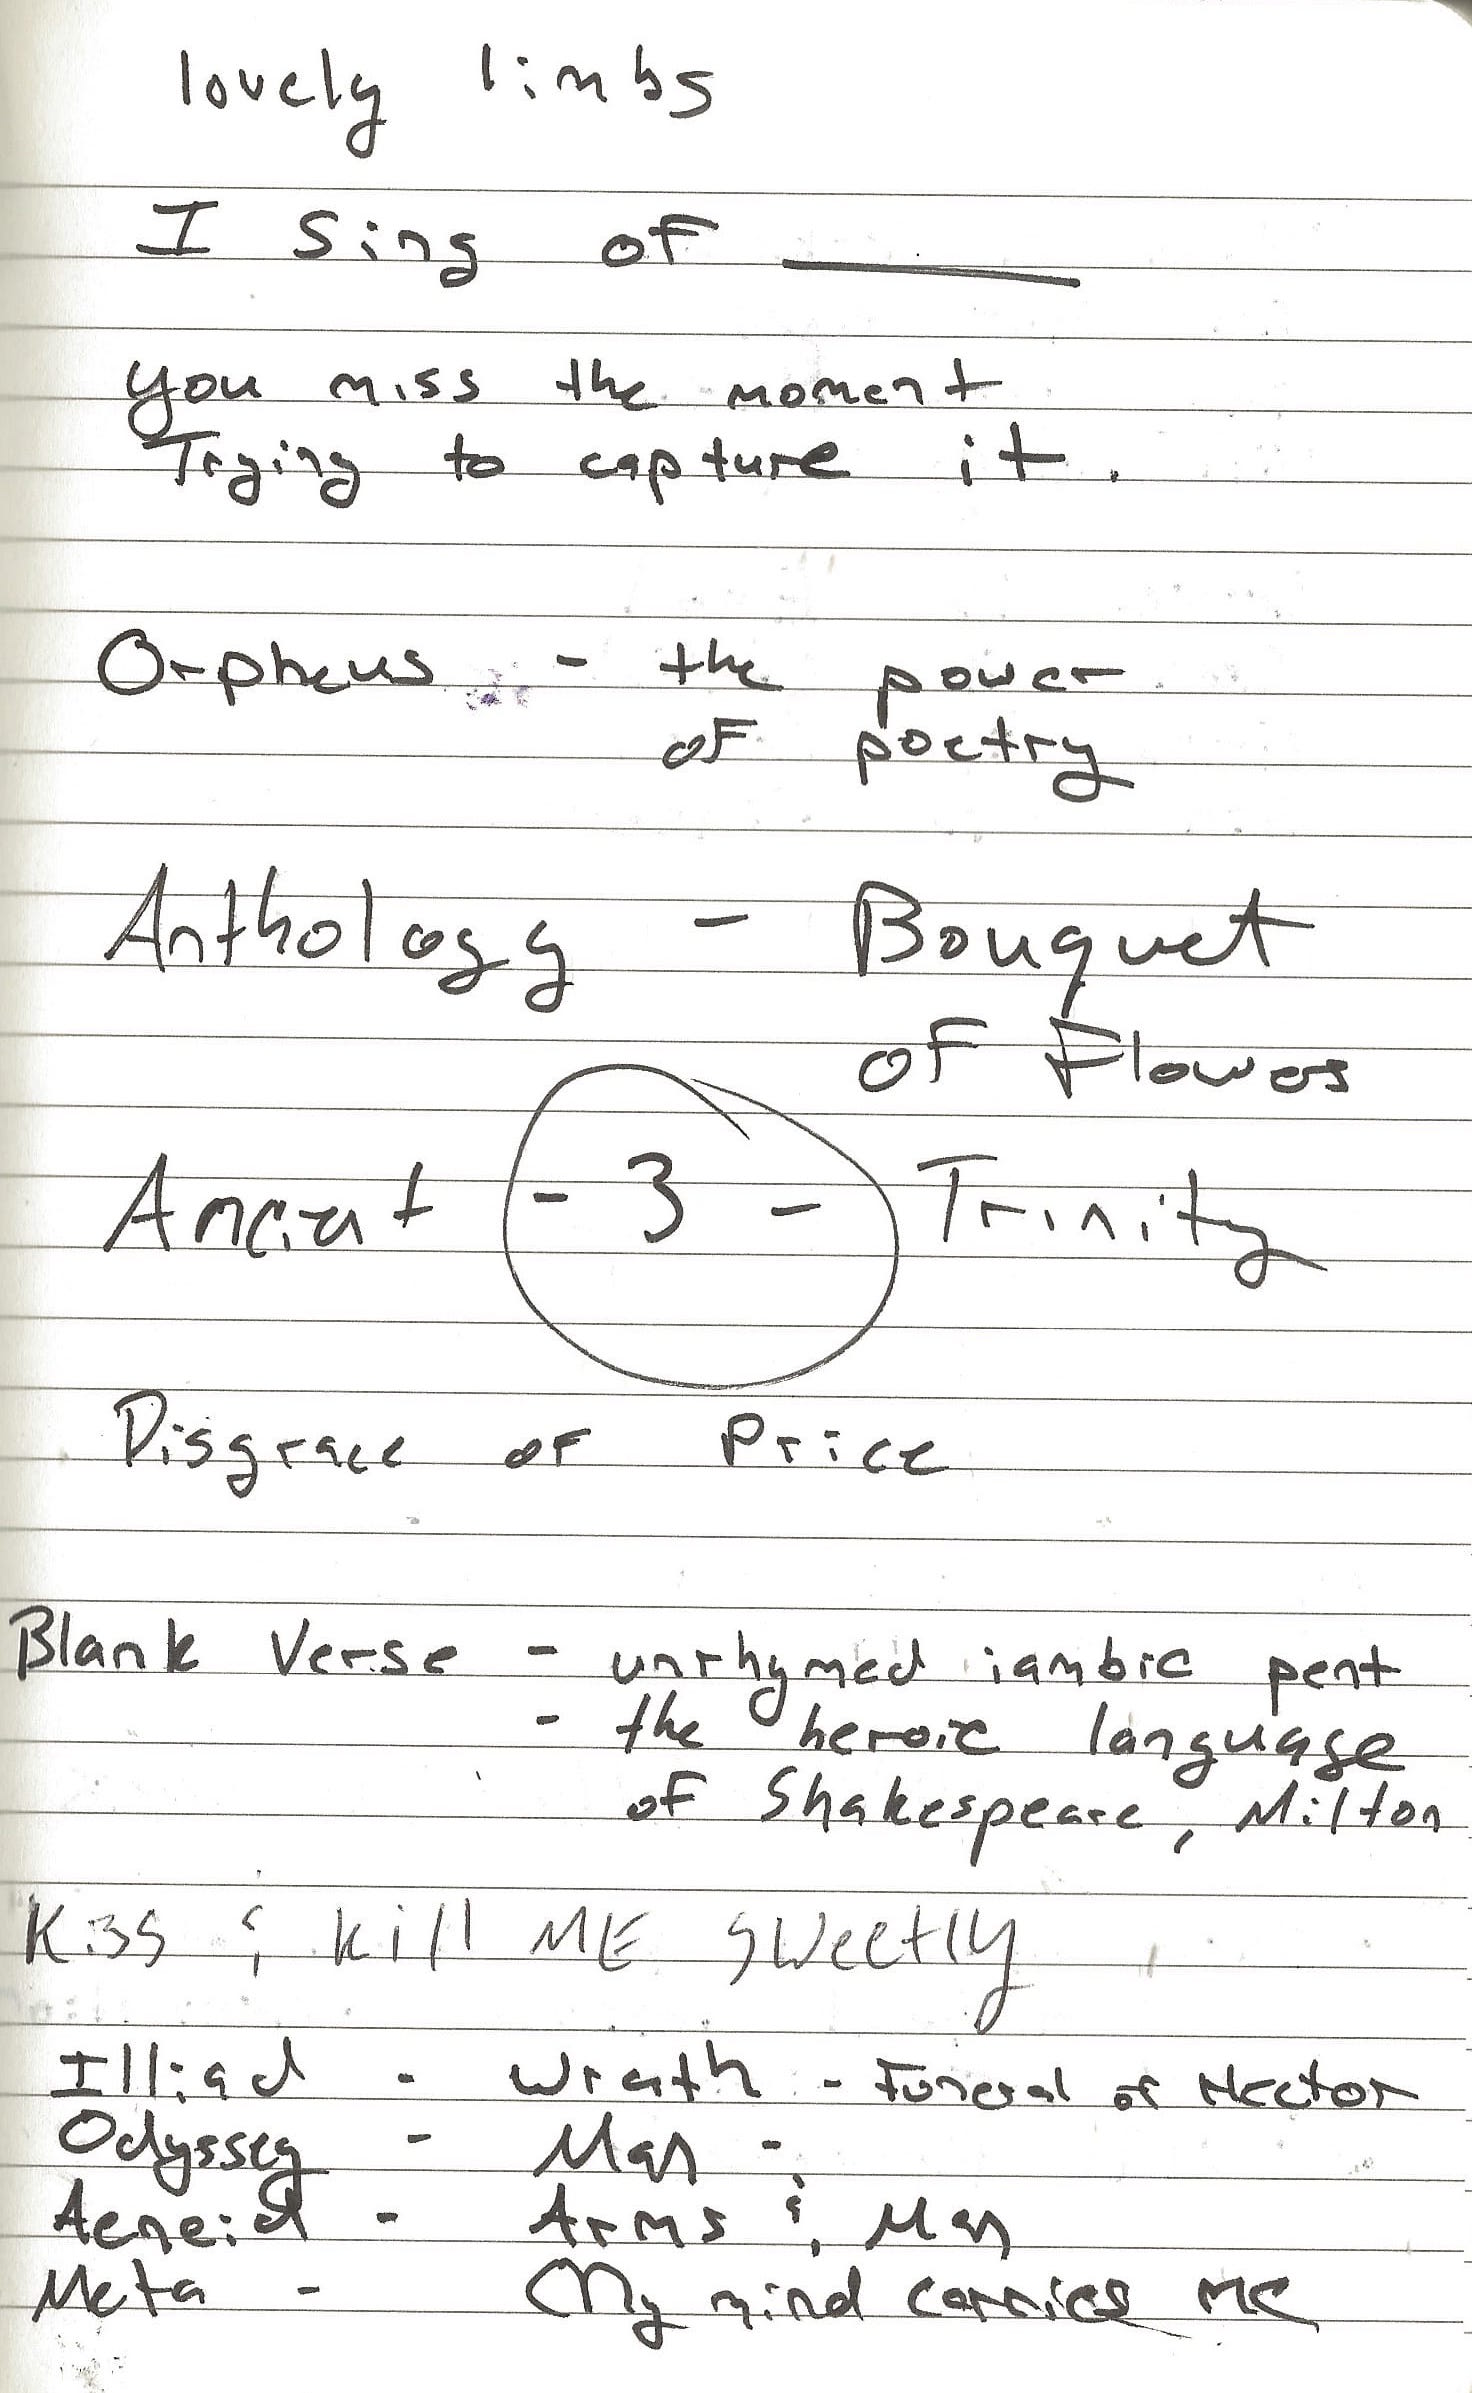 lovely limbs
I sing of ____
you miss the moment
Trying to capture it.
Orpheus - the power
of poetry
Anthology - Bouquet
of Flowers
Ancient - 3 - Trinity
Disgrace of Price
Blank Verse - unrhymed iambic pent
- the heroic language
of Shakespeare, Milton
Kiss & kill ME sweetly
Illiad - Wrath - Funeral of Hector
Odyssey - Man -
Aeneid - Arms & Man
Meta - My mind carries me